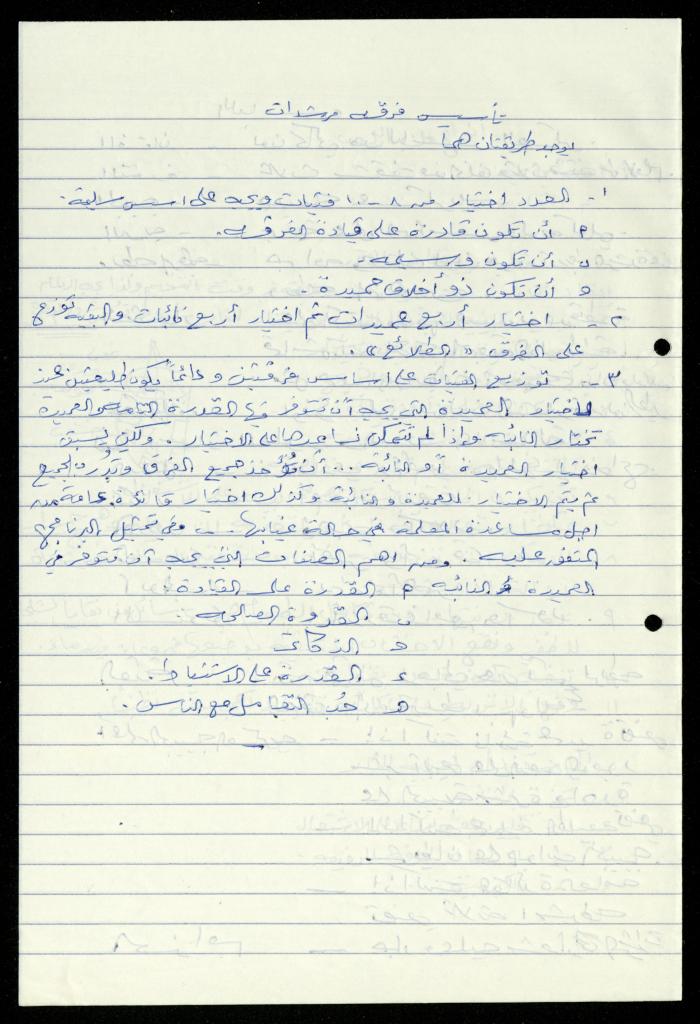 تأسيس فرقة مرشدات
يوجد طريقتان هما
١- العدد اختيار من ٨-١٠ فتيات ويجب على اسس سليمة.
أ أن تكون قادرة على قيادة الفرقة.
ب أن تكون وسيمه.
ج أن تكون ذو أخلاق حميدة.
٢- اختيار أربع عميدات ثم اختيار أربع نائبات والبقية توزع
على الفرق "الطلائع".
٣- توزيع الفتيات على اساس فرقتين ودائماً يكون طليعتين عند
اختيار العميدة التي يجب أن تتوفر فيها القدرة التامة والعميدة
تختار النائبة وإذا لم تتمكن نساعدها على الاختيار. ولكن يسبق
اختيار العميدة أو النائبة .. أن تؤخذ جميع الفرق وتدرب الجميع
ثم يتم الاختيار للعميدة والنائبة وكذلك اختيار قائدة عامة من
اجل مساعدة المعلمة في حالة غيابها.. وفي تمثيل البرنامج
المتفق عليه. ومن اهم الصفات التي يجب أن تتوفر في
العميدة والنائبة أ القدرة على القيادة.
ب القدوة الصالحة.
ج الذكاء
د القدرة على الاستنباط.
هـ حُب التعامل مع الناس.